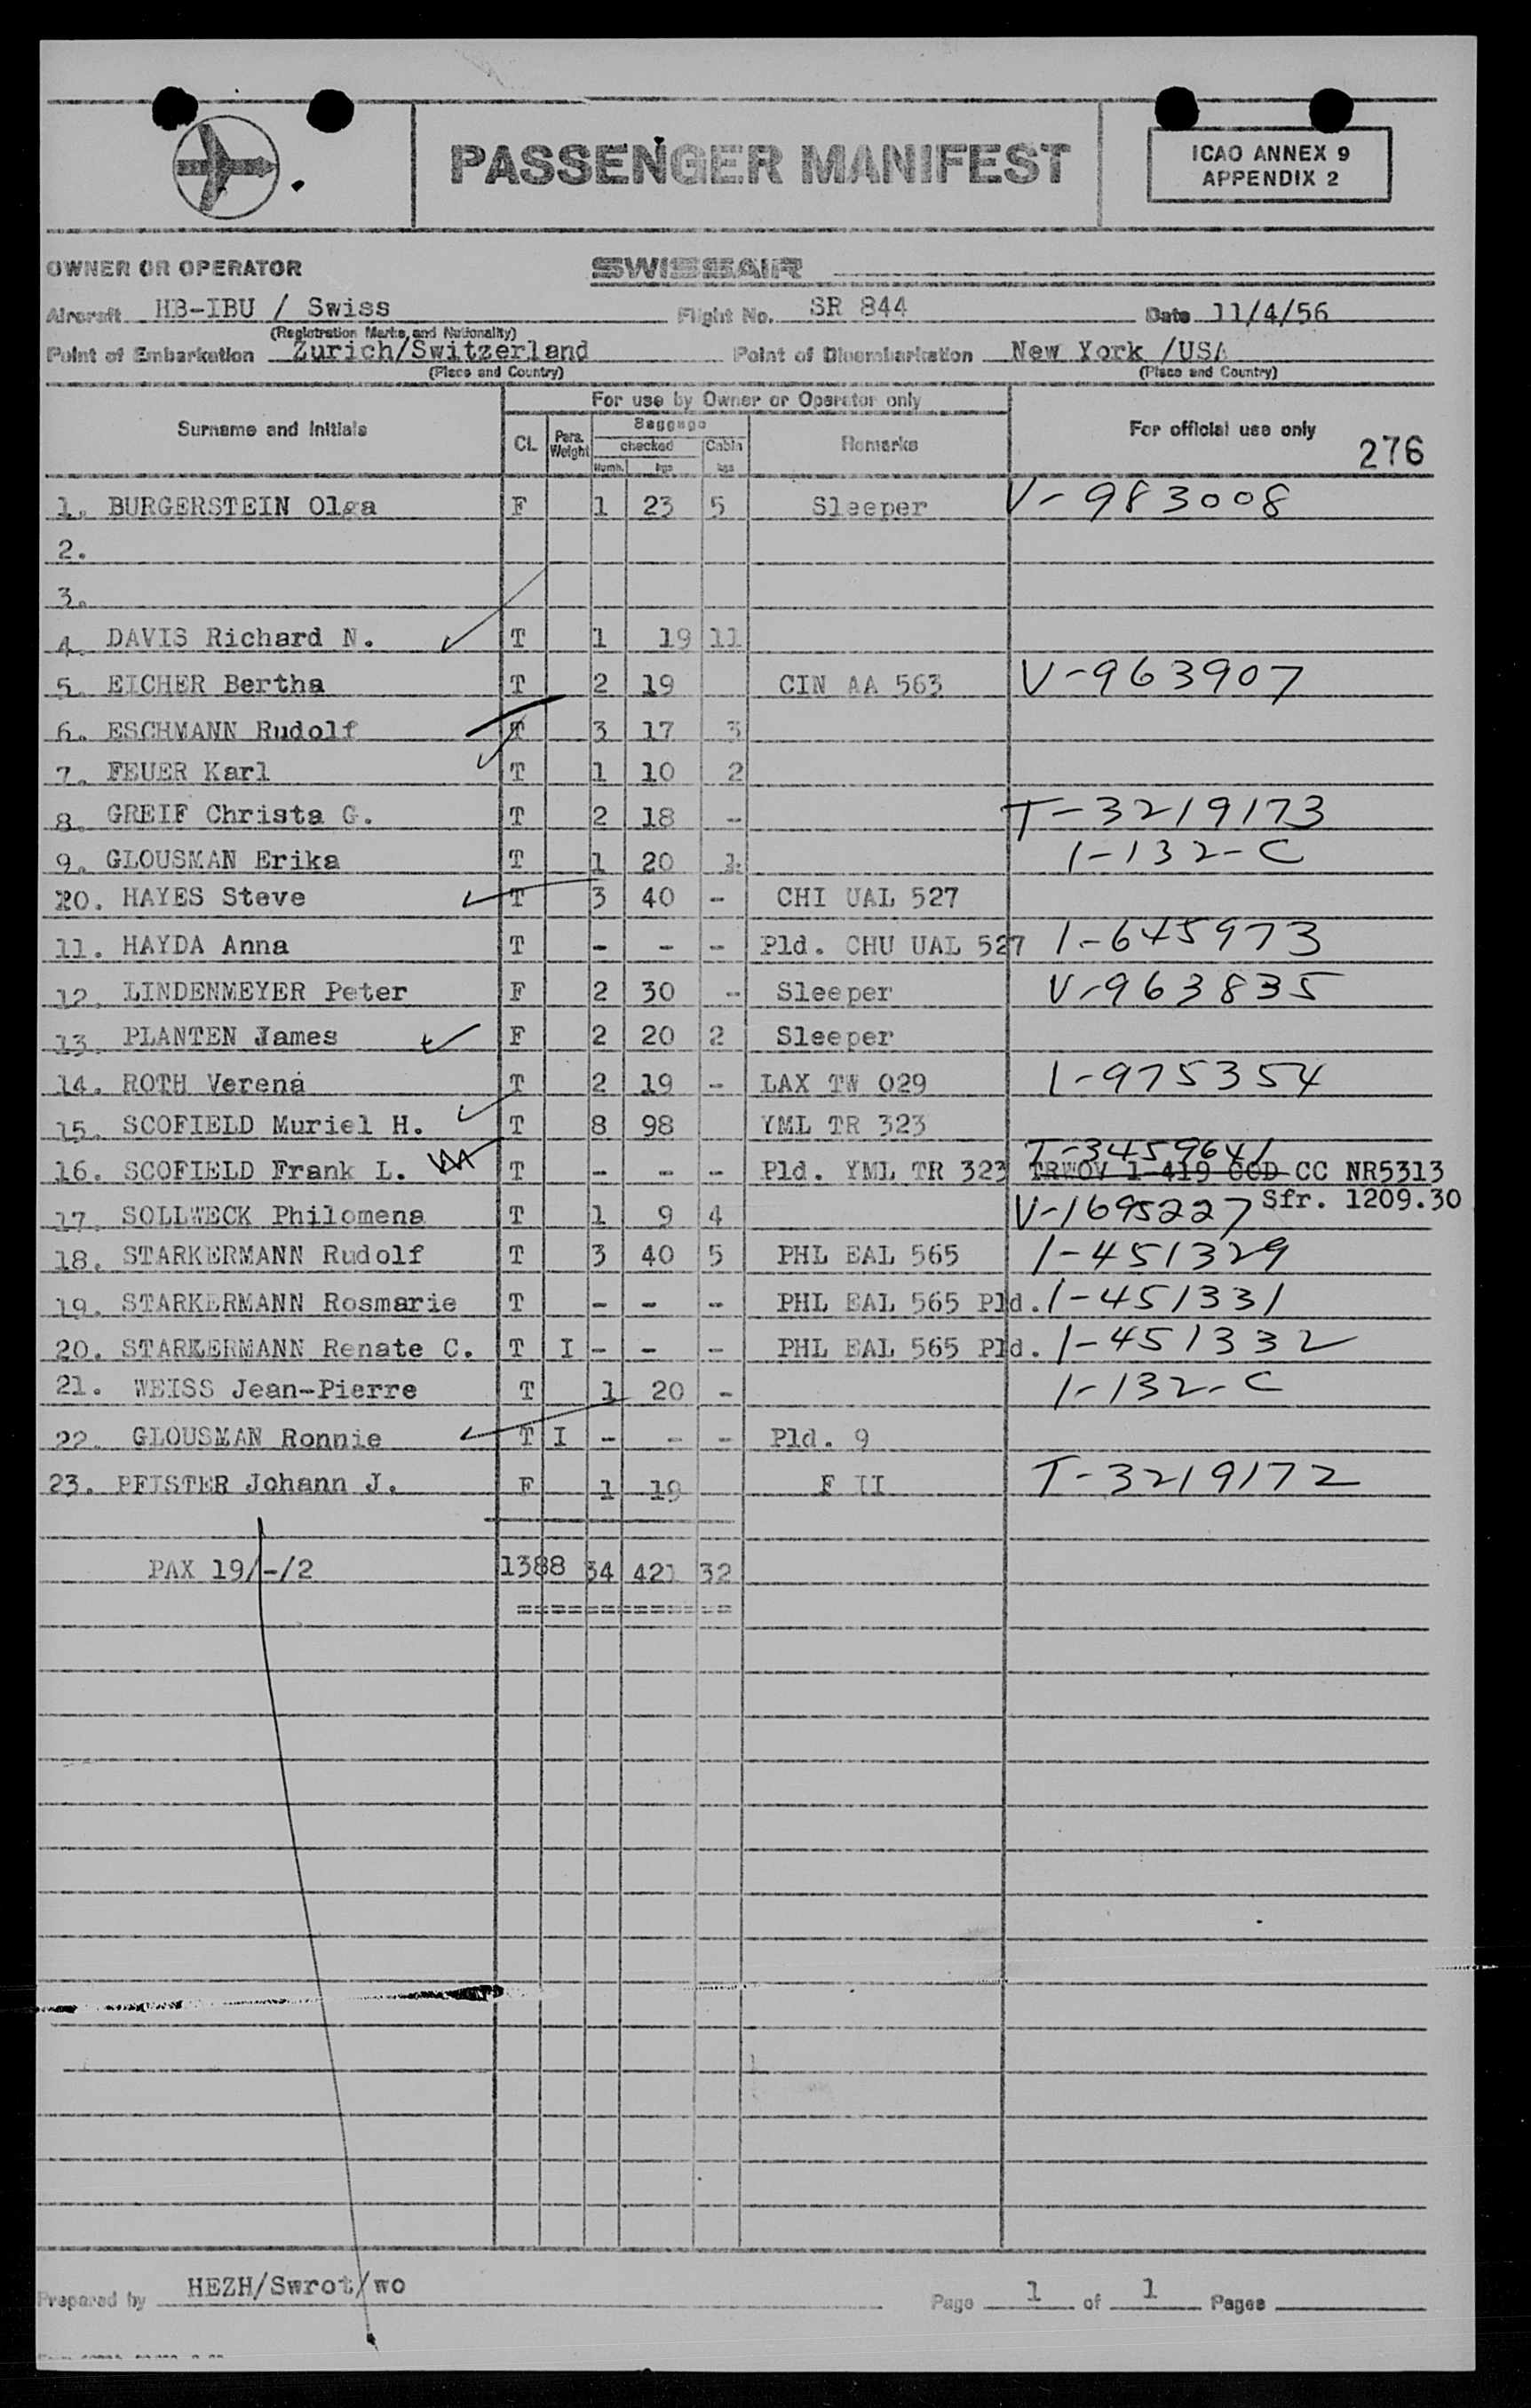 PASSENGER MANIFEST
ICAO ANNEX 9
APPENDIX 2
OWNER OR OPERATOR SWISSAIR
Aircraft HB-IBU / Swiss Flight No. SR 844 Date 11/4/56
(Registration Marks and Nationality)
Point of Embarkation Zurich/Switzerland Point of Disembarkation New York /USA
(Place and Country) (Place and Country)
For use by Owner or Operator only
Surname and Initials CL. Para. Weight Baggage checked Cabin Remarks For official use only
Numb. kgs kgs 276
1. BURGERSTEIN Olga F 1 23 5 Sleeper V-983008
2.
3.
4. DAVIS Richard N. T 1 19 11
5. EICHER Bertha T 2 19 CIN AA 563 V-963907
6. ESCHMANN Rudolf T 3 17 3
7. FEUER Karl T 1 10 2
8. GREIF Christa G. T 2 18 - T-3219173
9. GLOUSMAN Erika T 1 20 1. 1-132-C
10. HAYES Steve T 3 40 - CHI UAL 527
11. HAYDA Anna T - - - Pld. CHU UAL 527 1-645973
12. LINDENMEYER Peter F 2 30 - Sleeper V-963835
13. PLANTEN James F 2 20 2 Sleeper
14. ROTH Verena T 2 19 - LAX TW 029 1-975354
15. SCOFIELD Muriel H. T 8 98 YML TR 323
T-3459641
16. SCOFIELD Frank L. T - - - Pld. YML TR 323 TRWOV 1-419 COD CC NR5313
17. SOLLWECK Philomena T 1 9 4 V-1695227 Sfr. 1209.30
18. STARKERMANN Rudolf T 3 40 5 PHL EAL 565 1-451329
19. STARKERMANN Rosmarie T - - - PHL EAL 565 Pld. 1-451331
20. STARKERMANN Renate C. T I - - - PHL EAL 565 Pld. 1-451332
21. WEISS Jean-Pierre T 1 20 - 1-132-C
22. GLOUSMAN Ronnie T I - - - Pld. 9
23. PFISTER Johann J. F 1 19 F II T-3219172
PAX 19/-/2 1388 34 421 32
=============
Prepared by HEZH/Swrot/wo Page 1 of 1 Pages